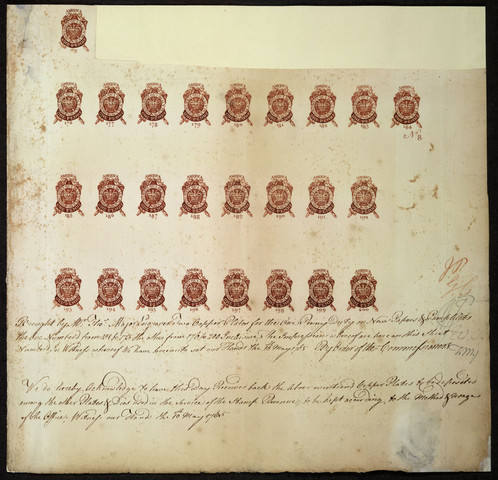 176 177 178 179 180 181 182 183 184
No. 8
185 186 187 188 189 190 191 192
193 194 195 196 197 198 199 200
Brought by Mr. Thos. Major Engraver Two Copper Plates for the One Penny Duty on News Papers & Pamphlets
the One Numberd from to the other from 175 to 200 Inclusive, the Impressions whereof are taken on this Sheet
Numberd, In Witness whereof We have hereunto set our Hands the 10 May 1765 By Order of the Commissioners
We do hereby Acknowledge to have this day Received back the above mentioned Copper Plates to be deposited
among the other Plates & Dies used in the Service of the Stamp Revenue, to be kept according to the Method & Usage
of the Office Witness our Hands the 10 May 1765